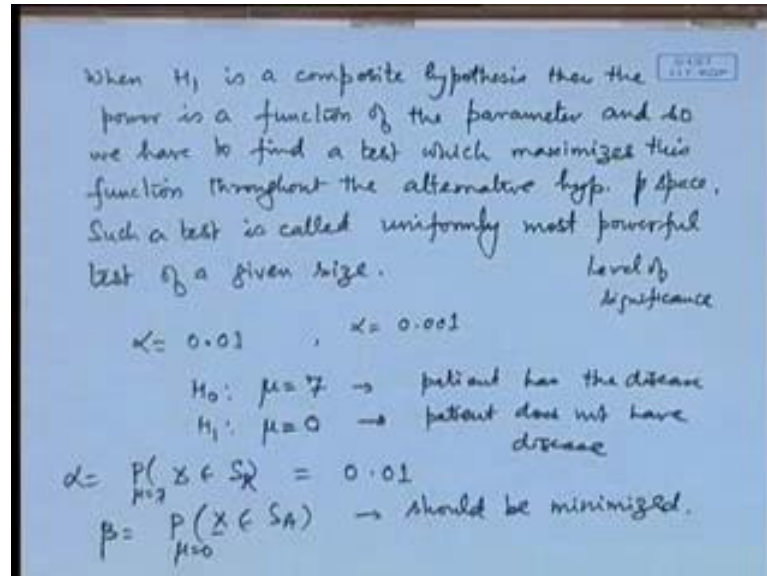 When H₁ is a composite hypothesis then the
power is a function of the parameter and so
we have to find a test which maximizes this
function throughout the alternative hyp. p space.
Such a test is called uniformly most powerful
test of a given size.
Level of
significance
α = 0.01 , α = 0.001
H₀: μ = 7 → patient has the disease
H₁: μ = 0 → patient does not have
disease
α = P(X ∈ S_R) = 0.01
μ=7
β = P(X ∈ S_A) → should be minimized.
μ=0